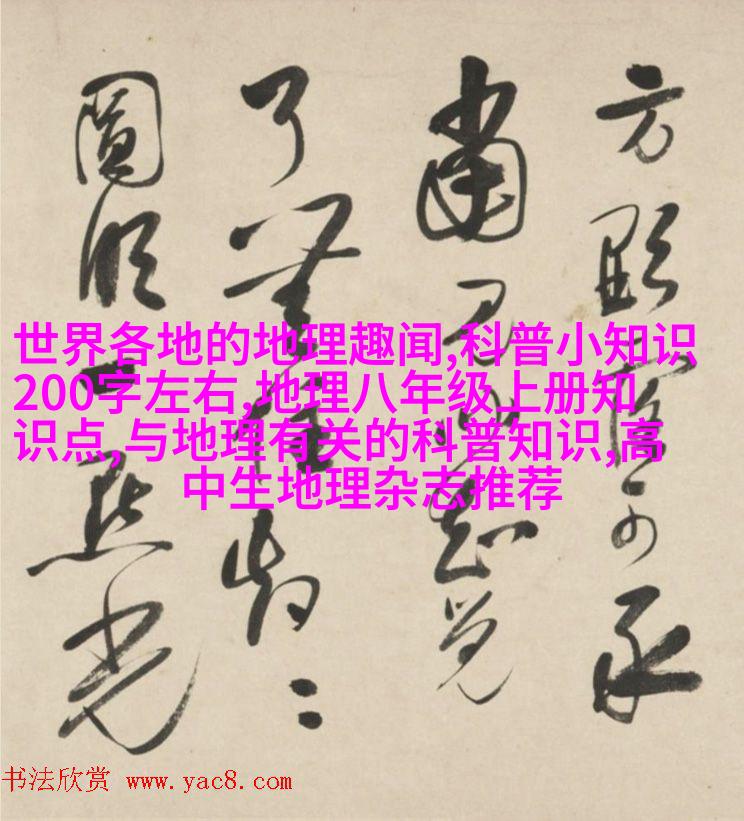 方可承
當知覺
了無
圓明一點光
世界各地的地理趣闻,科普小知识
200字左右,地理八年级上册知
识点,与地理有关的科普知识,高
中生地理杂志推荐
书法欣赏 www.yac8.com